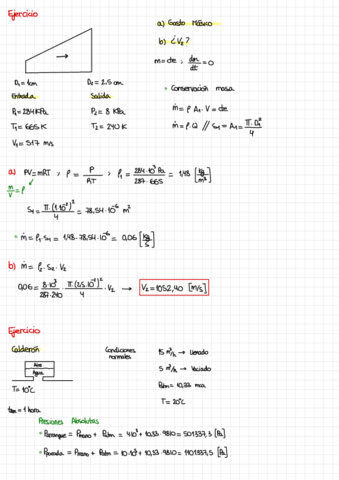 Ejercicio
a) Gasto Másico
b) ¿V₂?
m = cte ; dm/dt = 0
D₁ = 1cm
D₂ = 2.5 cm
Entrada
Salida
P₁ = 284 KPa
P₂ = 8 KPa
T₁ = 665 K
T₂ = 240 K
V₁ = 517 m/s
Conservación masa
ṁ = ρ A₁ · V = cte
ṁ = ρ·Q // S₁ = A₁ = π·D₁²/4
a) PV = mRT ; ρ = P/RT ; ρ₁ = 284·10³ Pa / 287·665 = 1,48 [kg/m³]
m/V = ρ
S₁ = π·(1·10⁻²)²/4 = 78,54·10⁻⁶ m²
ṁ = ρ₁·S₁ = 1,48·78,54·10⁻⁶ = 0,06 [kg/s]
b) ṁ = ρ₂·S₂·V₂
0,06 = 8·10³/287·240 · π·(2,5·10⁻²)²/4 · V₂ → V₂ = 1052,40 [m/s]
Ejercicio
Calderón
Condiciones normales
15 m³/h → Llenado
Aire
Agua
5 m³/h → Vaciado
Patm = 10,33 mca
T = 10°C
T = 20°C
1 hora
Presiones Absolutas
Parranque = Pmano + Patm = 4·10⁵ + 10,33·9810 = 501337,3 [Pa]
Pparada = Pmano + Patm = 10·10⁵ + 10,33·9810 = 1101337,5 [Pa]